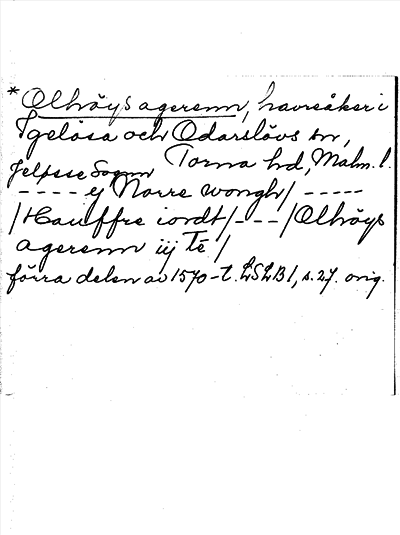 * Olhöys agerenn, havreåker i
Igelösa och Odarslövs sn,
Torna hd, Malm. l.
Jelpsse Sognn
---- ij Norre wongh/ -----
/Hauffre iordt/---/Olhöys
agerenn iij Té/
förra delen av 1570-t. LSLB I, s. 27. orig.